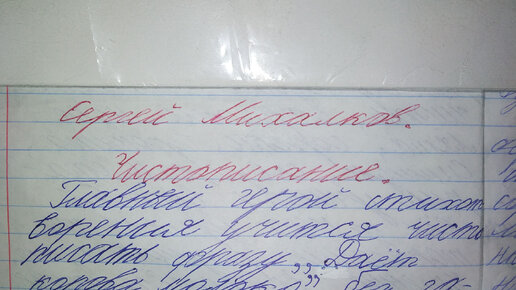 Сергей Михалков.
Чистописание.
Главный герой стихот
ворения учится чисто
писать фразу „Даёт
корова молоко" без га-